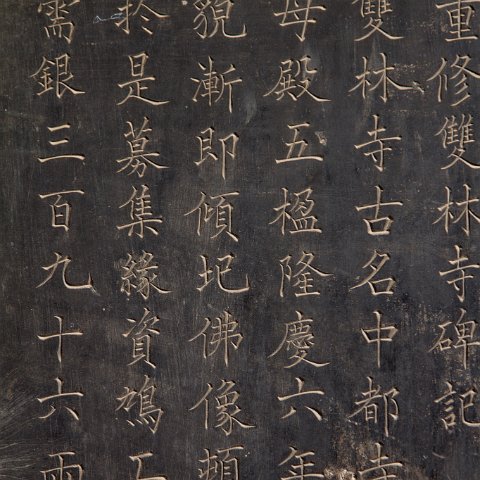 重修雙林寺碑記
雙林寺古名中都寺
母殿五楹隆慶六年
貌漸即傾圯佛像頓
扵是募集緣資鳩工
需銀三百九十六兩